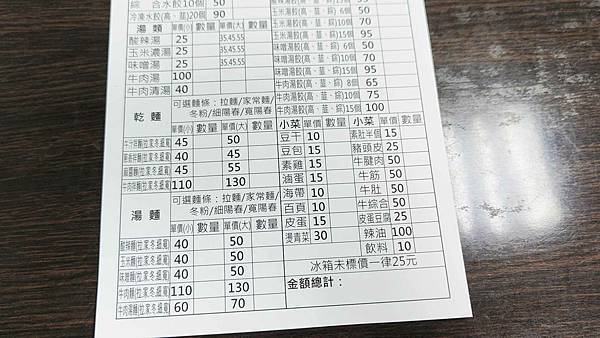 綜　合水餃10個 50
冷凍水餃(高、韮)20個 90
湯　麵 單價(小) 數量 單價(大) 數量
酸辣湯 25 35.45.55
玉米濃湯 25 35.45.55
味噌湯 25 35.45.55
牛肉湯 100
牛肉清湯 40
乾　麵
可選麵條：拉麵/家常麵/
冬粉/細陽春/寬陽春
單價(小) 數量 單價(大) 數量
45 50
40 45
45 55
110 130
湯　麵
可選麵條：拉麵/家常麵/
冬粉/細陽春/寬陽春
單價(小) 數量 單價(大) 數量
酸辣麵(拉.家.冬.細.寬) 40 50
玉米麵(拉.家.冬.細.寬) 40 50
味噌麵(拉.家.冬.細.寬) 40 50
牛肉麵(拉.家.冬.細.寬) 110 130
牛肉湯麵(拉.家.冬.細.寬) 60 70
玉米湯餃(高、韮、綜) 6個 50
95
味噌湯餃(高、韮、綜) 6個 50
味噌湯餃(高、韮、綜)10個 70
味噌湯餃(高、韮、綜)15個 95
牛肉湯餃(高、韮、綜) 6個 65
牛肉湯餃(高、韮、綜)10個 75
牛肉湯餃(高、韮、綜)15個 100
小菜 單價 數量 小菜 單價 數量
豆干 10 素肚半個 15
豆包 15 豬頭皮 25
素雞 15 牛腱肉 50
滷蛋 10 牛筋 50
海帶 10 牛肚 50
百頁 10 牛綜合 50
皮蛋 15 皮蛋豆腐 25
燙青菜 30 辣油 100
飲料 10
冰箱未標價一律25元
金額總計：